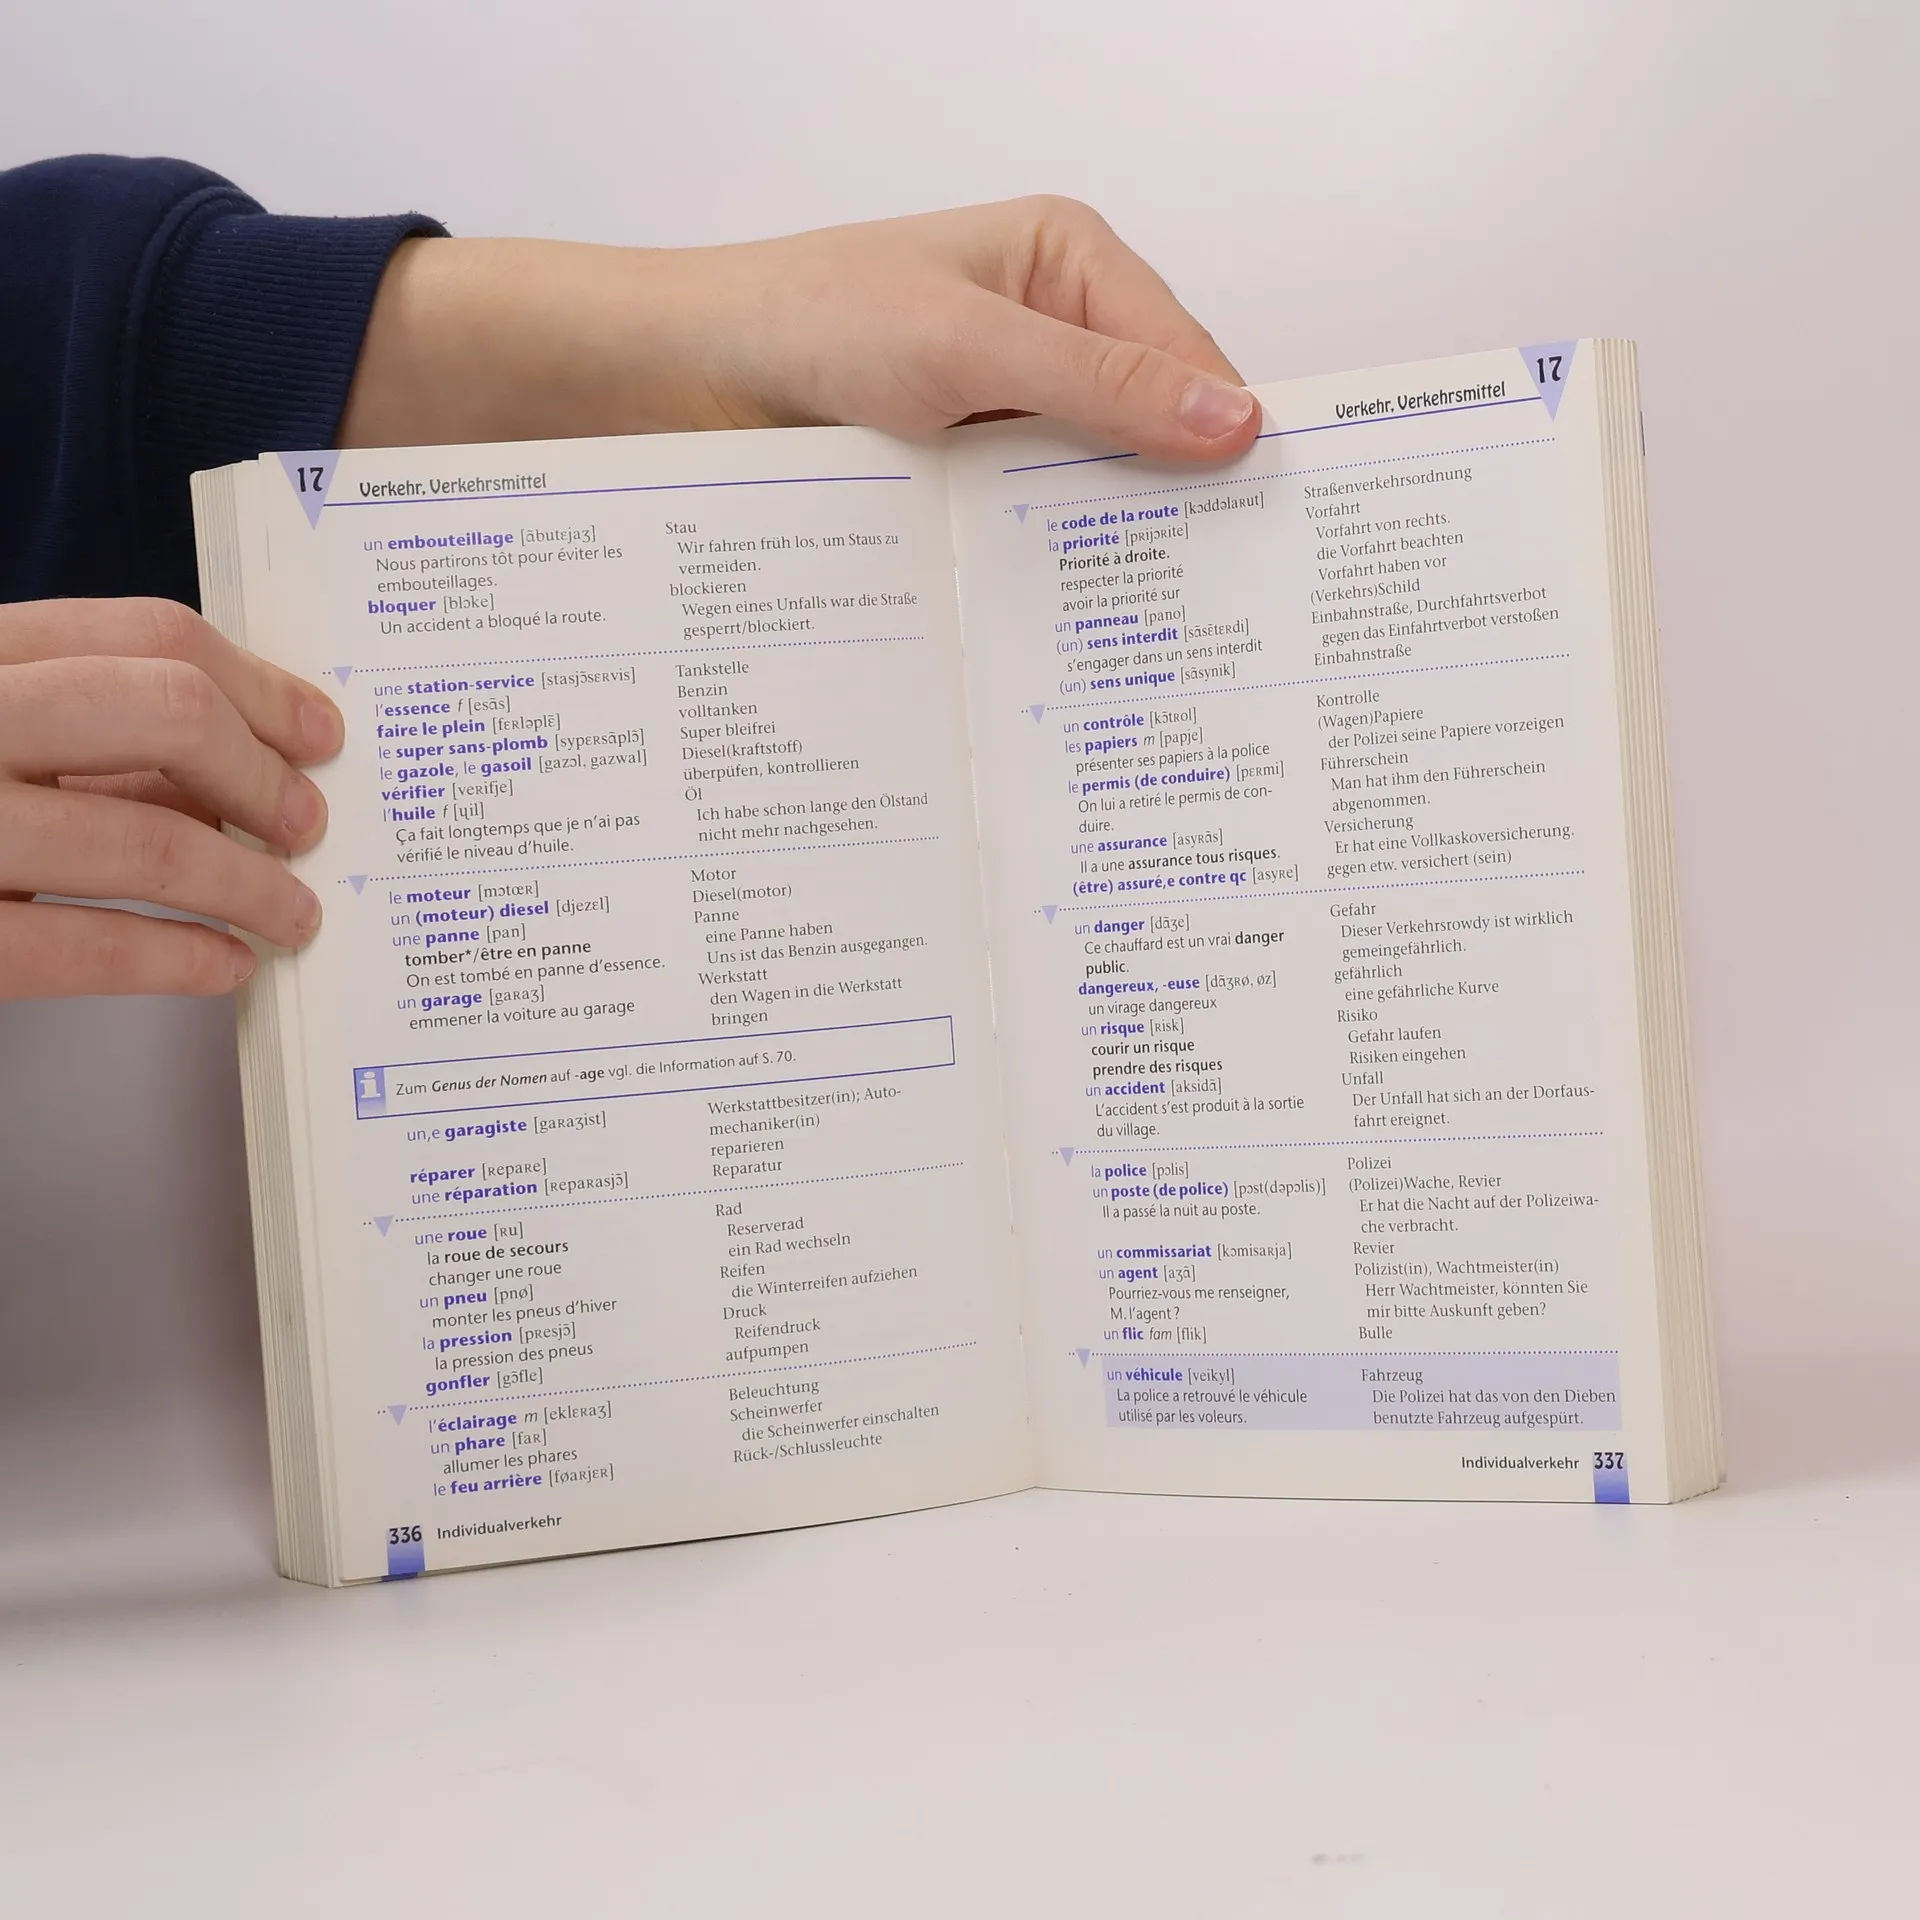 17 Verkehr, Verkehrsmittel
un embouteillage [ɑ̃butɛjaʒ] Stau
Nous partirons tôt pour éviter les Wir fahren früh los, um Staus zu
embouteillages. vermeiden.
bloquer [blɔke] blockieren
Un accident a bloqué la route. Wegen eines Unfalls war die Straße
gesperrt/blockiert.
une station-service [stasjɔ̃sɛʀvis] Tankstelle
l'essence f [esɑ̃s] Benzin
faire le plein [fɛʀləplɛ̃] volltanken
le super sans-plomb [sypɛʀsɑ̃plɔ̃] Super bleifrei
le gazole, le gasoil [gazɔl, gazwal] Diesel(kraftstoff)
vérifier [veʀifje] überpüfen, kontrollieren
l'huile f [ɥil] Öl
Ça fait longtemps que je n'ai pas Ich habe schon lange den Ölstand
vérifié le niveau d'huile. nicht mehr nachgesehen.
le moteur [mɔtœʀ] Motor
un (moteur) diesel [djezɛl] Diesel(motor)
une panne [pan] Panne
tomber*/être en panne eine Panne haben
On est tombé en panne d'essence. Uns ist das Benzin ausgegangen.
un garage [gaʀaʒ] Werkstatt
emmener la voiture au garage den Wagen in die Werkstatt
bringen
i Zum Genus der Nomen auf -age vgl. die Information auf S. 70.
un,e garagiste [gaʀaʒist] Werkstattbesitzer(in); Auto-
mechaniker(in)
réparer [ʀepaʀe] reparieren
une réparation [ʀepaʀasjɔ̃] Reparatur
une roue [ʀu] Rad
la roue de secours Reserverad
changer une roue ein Rad wechseln
un pneu [pnø] Reifen
monter les pneus d'hiver die Winterreifen aufziehen
la pression [pʀesjɔ̃] Druck
la pression des pneus Reifendruck
gonfler [gɔ̃fle] aufpumpen
l'éclairage m [eklɛʀaʒ] Beleuchtung
un phare [faʀ] Scheinwerfer
allumer les phares die Scheinwerfer einschalten
le feu arrière [føaʀjɛʀ] Rück-/Schlussleuchte
336 Individualverkehr
Verkehr, Verkehrsmittel 17
le code de la route [kɔddəlaʀut] Straßenverkehrsordnung
la priorité [pʀijɔʀite] Vorfahrt
Priorité à droite. Vorfahrt von rechts.
respecter la priorité die Vorfahrt beachten
avoir la priorité sur Vorfahrt haben vor
un panneau [pano] (Verkehrs)Schild
(un) sens interdit [sɑ̃sɛ̃tɛʀdi] Einbahnstraße, Durchfahrtsverbot
s'engager dans un sens interdit gegen das Einfahrtverbot verstoßen
(un) sens unique [sɑ̃synik] Einbahnstraße
un contrôle [kɔ̃tʀol] Kontrolle
les papiers m [papje] (Wagen)Papiere
présenter ses papiers à la police der Polizei seine Papiere vorzeigen
le permis (de conduire) [pɛʀmi] Führerschein
On lui a retiré le permis de con- Man hat ihm den Führerschein
duire. abgenommen.
une assurance [asyʀɑ̃s] Versicherung
Il a une assurance tous risques. Er hat eine Vollkaskoversicherung.
(être) assuré,e contre qc [asyʀe] gegen etw. versichert (sein)
un danger [dɑ̃ʒe] Gefahr
Ce chauffard est un vrai danger Dieser Verkehrsrowdy ist wirklich
public. gemeingefährlich.
dangereux, -euse [dɑ̃ʒʀø, øz] gefährlich
un virage dangereux eine gefährliche Kurve
un risque [ʀisk] Risiko
courir un risque Gefahr laufen
prendre des risques Risiken eingehen
un accident [aksidɑ̃] Unfall
L'accident s'est produit à la sortie Der Unfall hat sich an der Dorfaus-
du village. fahrt ereignet.
la police [pɔlis] Polizei
un poste (de police) [pɔst(dəpɔlis)] (Polizei)Wache, Revier
Il a passé la nuit au poste. Er hat die Nacht auf der Polizeiwa-
che verbracht.
un commissariat [kɔmisaʀja] Revier
un agent [aʒɑ̃] Polizist(in), Wachtmeister(in)
Pourriez-vous me renseigner, Herr Wachtmeister, könnten Sie
M. l'agent? mir bitte Auskunft geben?
un flic fam [flik] Bulle
un véhicule [veikyl] Fahrzeug
La police a retrouvé le véhicule Die Polizei hat das von den Dieben
utilisé par les voleurs. benutzte Fahrzeug aufgespürt.
Individualverkehr 337